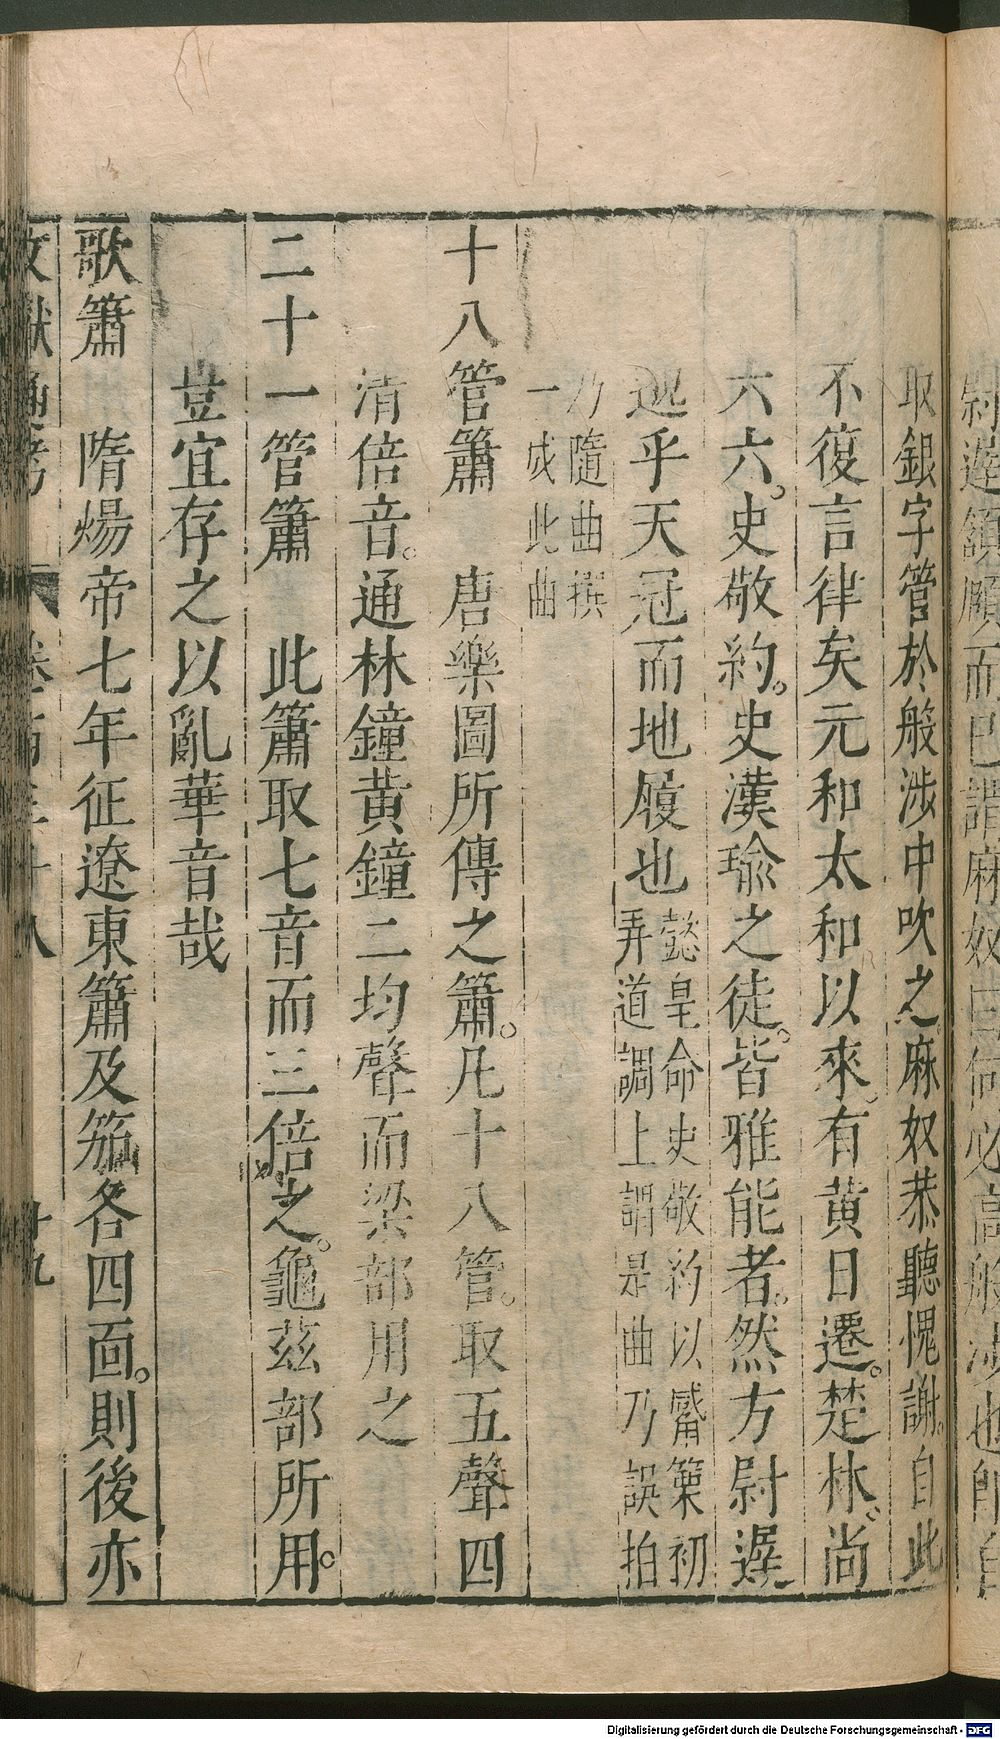 取銀字管於般涉中吹之麻奴恭聽愧謝自此
不復言律矣元和太和以來有黄日遷。楚林。尚
六六。史敬約。史漢瑜之徒。皆雅能者。然方尉遲
迥乎天冠而地履也懿皇命史敬約以觱篥初
弄道調上謂是曲乃誤拍
乃隨曲撰
一成此曲
十八管簫 唐樂圖所傳之簫。凡十八管。取五聲四
清倍音。通林鐘黄鐘二均聲而梁部用之
二十一管簫 此簫取七音而三倍之。龜茲部所用。
豈宜存之以亂華音哉
歌簫 隋煬帝七年征遼東簫及笳各四面。則後亦
文獻通考 卷一百三十八 十九
Digitalisierung gefördert durch die Deutsche Forschungsgemeinschaft - DFG